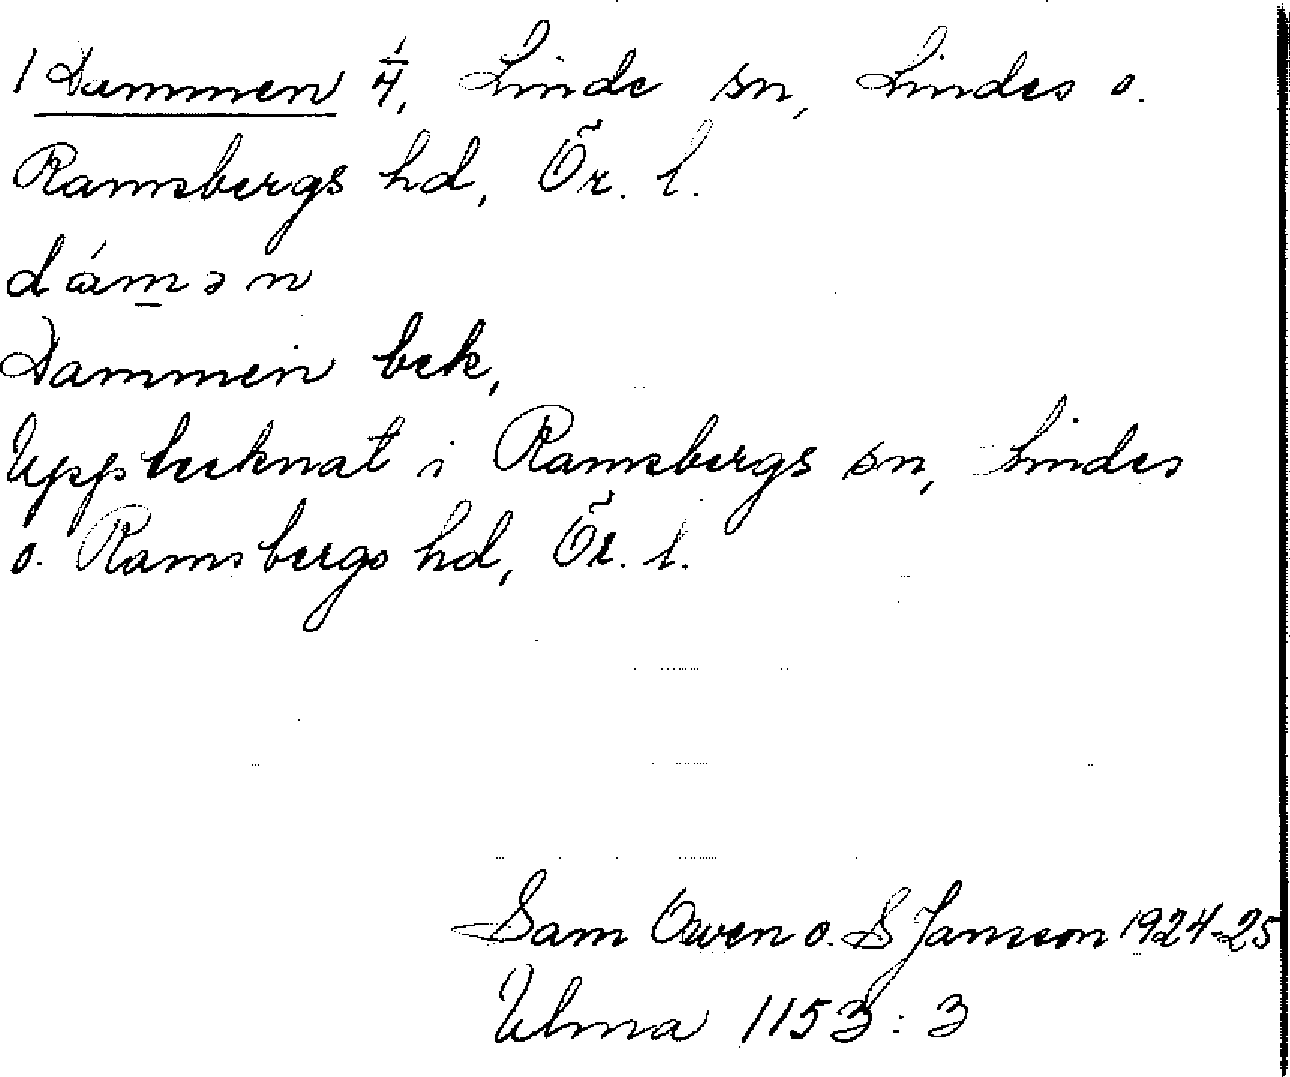 1 Dammen 1/4, Linde sn, Lindes o.
Ramsbergs hd, Ör. l.
dámən
Dammen bek,
Upptecknat i Ramsbergs sn, Lindes
o. Ramsbergs hd, Ör. l.
Sam Owen o. S Jansson 1924-25
Ulma 1153:3